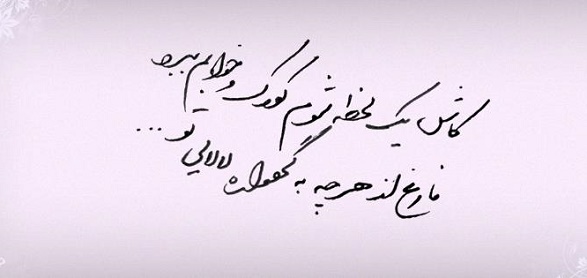 کاش یک لحظه شوم کودک و خوابم ببرد
فارغ از هرچه به گهواره لالایی تو...